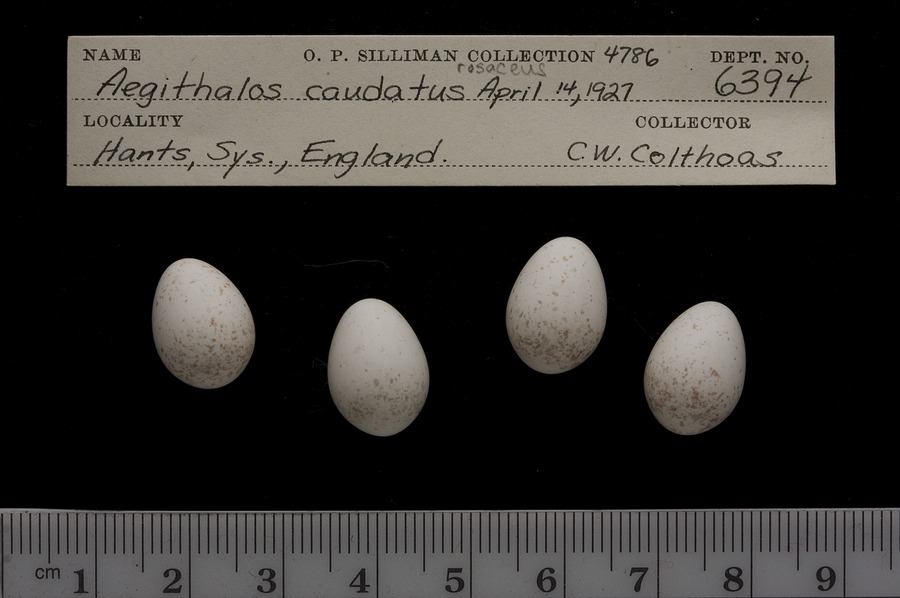 NAME O. P. SILLIMAN COLLECTION 4786 DEPT. NO.
rosaceus
Aegithalos caudatus April 14, 1927 6394
LOCALITY COLLECTOR
Hants, Sys., England. C.W. Colthoas
cm 1 2 3 4 5 6 7 8 9